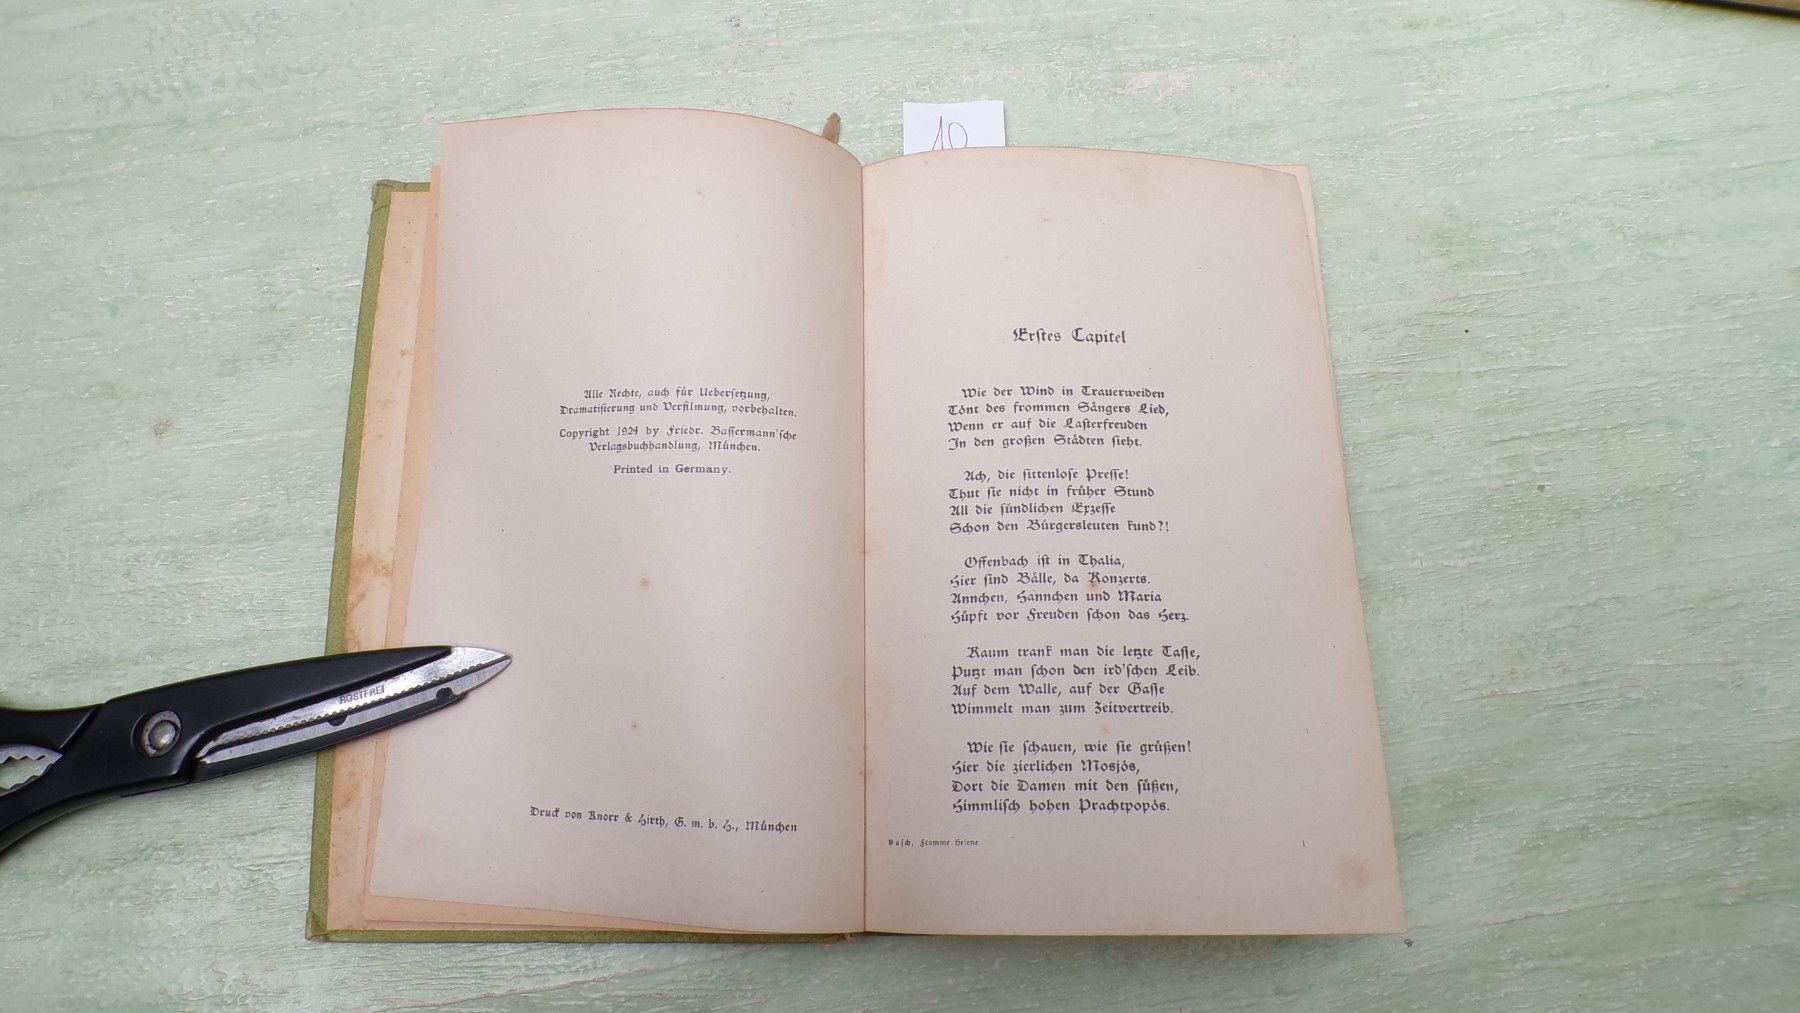 10
Alle Rechte, auch für Uebersetzung,
Dramatisierung und Verfilmung, vorbehalten.
Copyright 1924 by Friedr. Bassermann'sche
Verlagsbuchhandlung, München.
Printed in Germany.
Druck von Knorr & Hirth, G. m. b. H., München
ROSTFREI
Erstes Capitel
Wie der Wind in Trauerweiden
Tönt des frommen Sängers Lied,
Wenn er auf die Lasterfreuden
In den großen Städten sieht.
Ach, die sittenlose Presse!
Thut sie nicht in früher Stund
All die sündlichen Exzesse
Schon den Bürgersleuten kund?!
Offenbach ist in Thalia,
Hier sind Bälle, da Konzerts.
Annchen, Hannchen und Maria
Hüpft vor Freuden schon das Herz.
Kaum trank man die letzte Tasse,
Putzt man schon den ird'schen Leib.
Auf dem Walle, auf der Gasse
Wimmelt man zum Zeitvertreib.
Wie sie schauen, wie sie grüßen!
Hier die zierlichen Mosjös,
Dort die Damen mit den süßen,
Himmlisch hohen Prachtpopös.
Busch, Fromme Helene
1